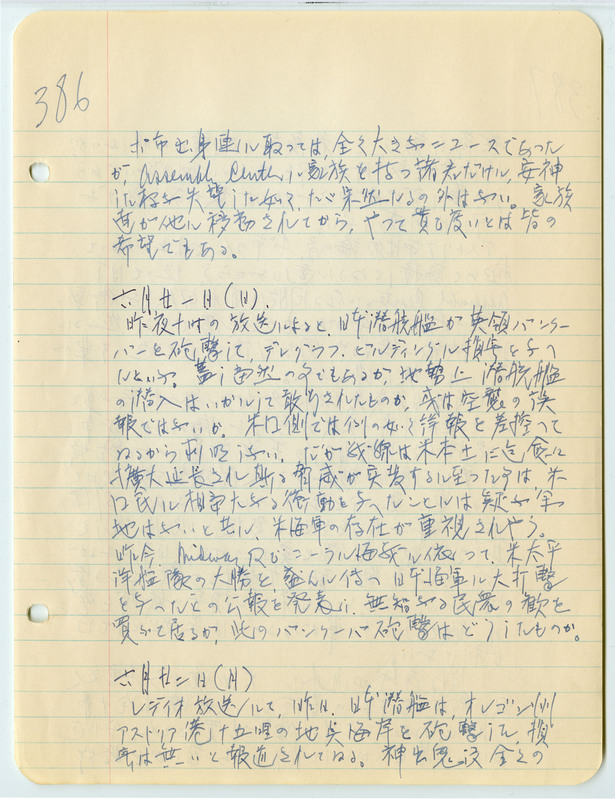 386
出身達に取っては、全く大きなニュースであった
が、Assembly Centerに家族を持つ諸君だけは、安神
した様な失望した如く、たゞ呆然たるの外はない。家族
達が他に移動されてから、やって貰ひ度いとは皆の
希望でもある。
六月廿一日(日).
昨夜十時の放送によると、日本潜航艦が英領バンクー
バーを砲撃して、テレグラフ・ビルディングに損害を与へ
たといふ。蓋し当然の事でもあるが、地勢上潜航艦
の潜入はいかにして敢行されたものか、或は空襲の誤
報ではないか。米国側では例の如く詳報を差控へて
ゐるから判明しない。だが戦線は米本土に迄、愈に
擴大延長され、斯る脅威が実装するに至った事は、米
国民に相当大なる衝動を与へたことには疑ふ余
地はないと共に、米海軍の存在が重視されやう。
昨今、Midway及びコーラル海戦に依って、米太平
洋艦隊の大勝を、盛んに伝へ日本海軍に大打撃
を与ったとの公報を発表し、無智なる民衆の歓を
買ふて居るが、此のバンクーバ砲撃はどうしたものか。
六月廿二日(月)
レディオ放送にて、昨日、日本潜艦は、オレゴン州
アストリア港十五哩の地点海岸を砲撃して、損
害は無いと報道されてゐる。神出鬼没全くの